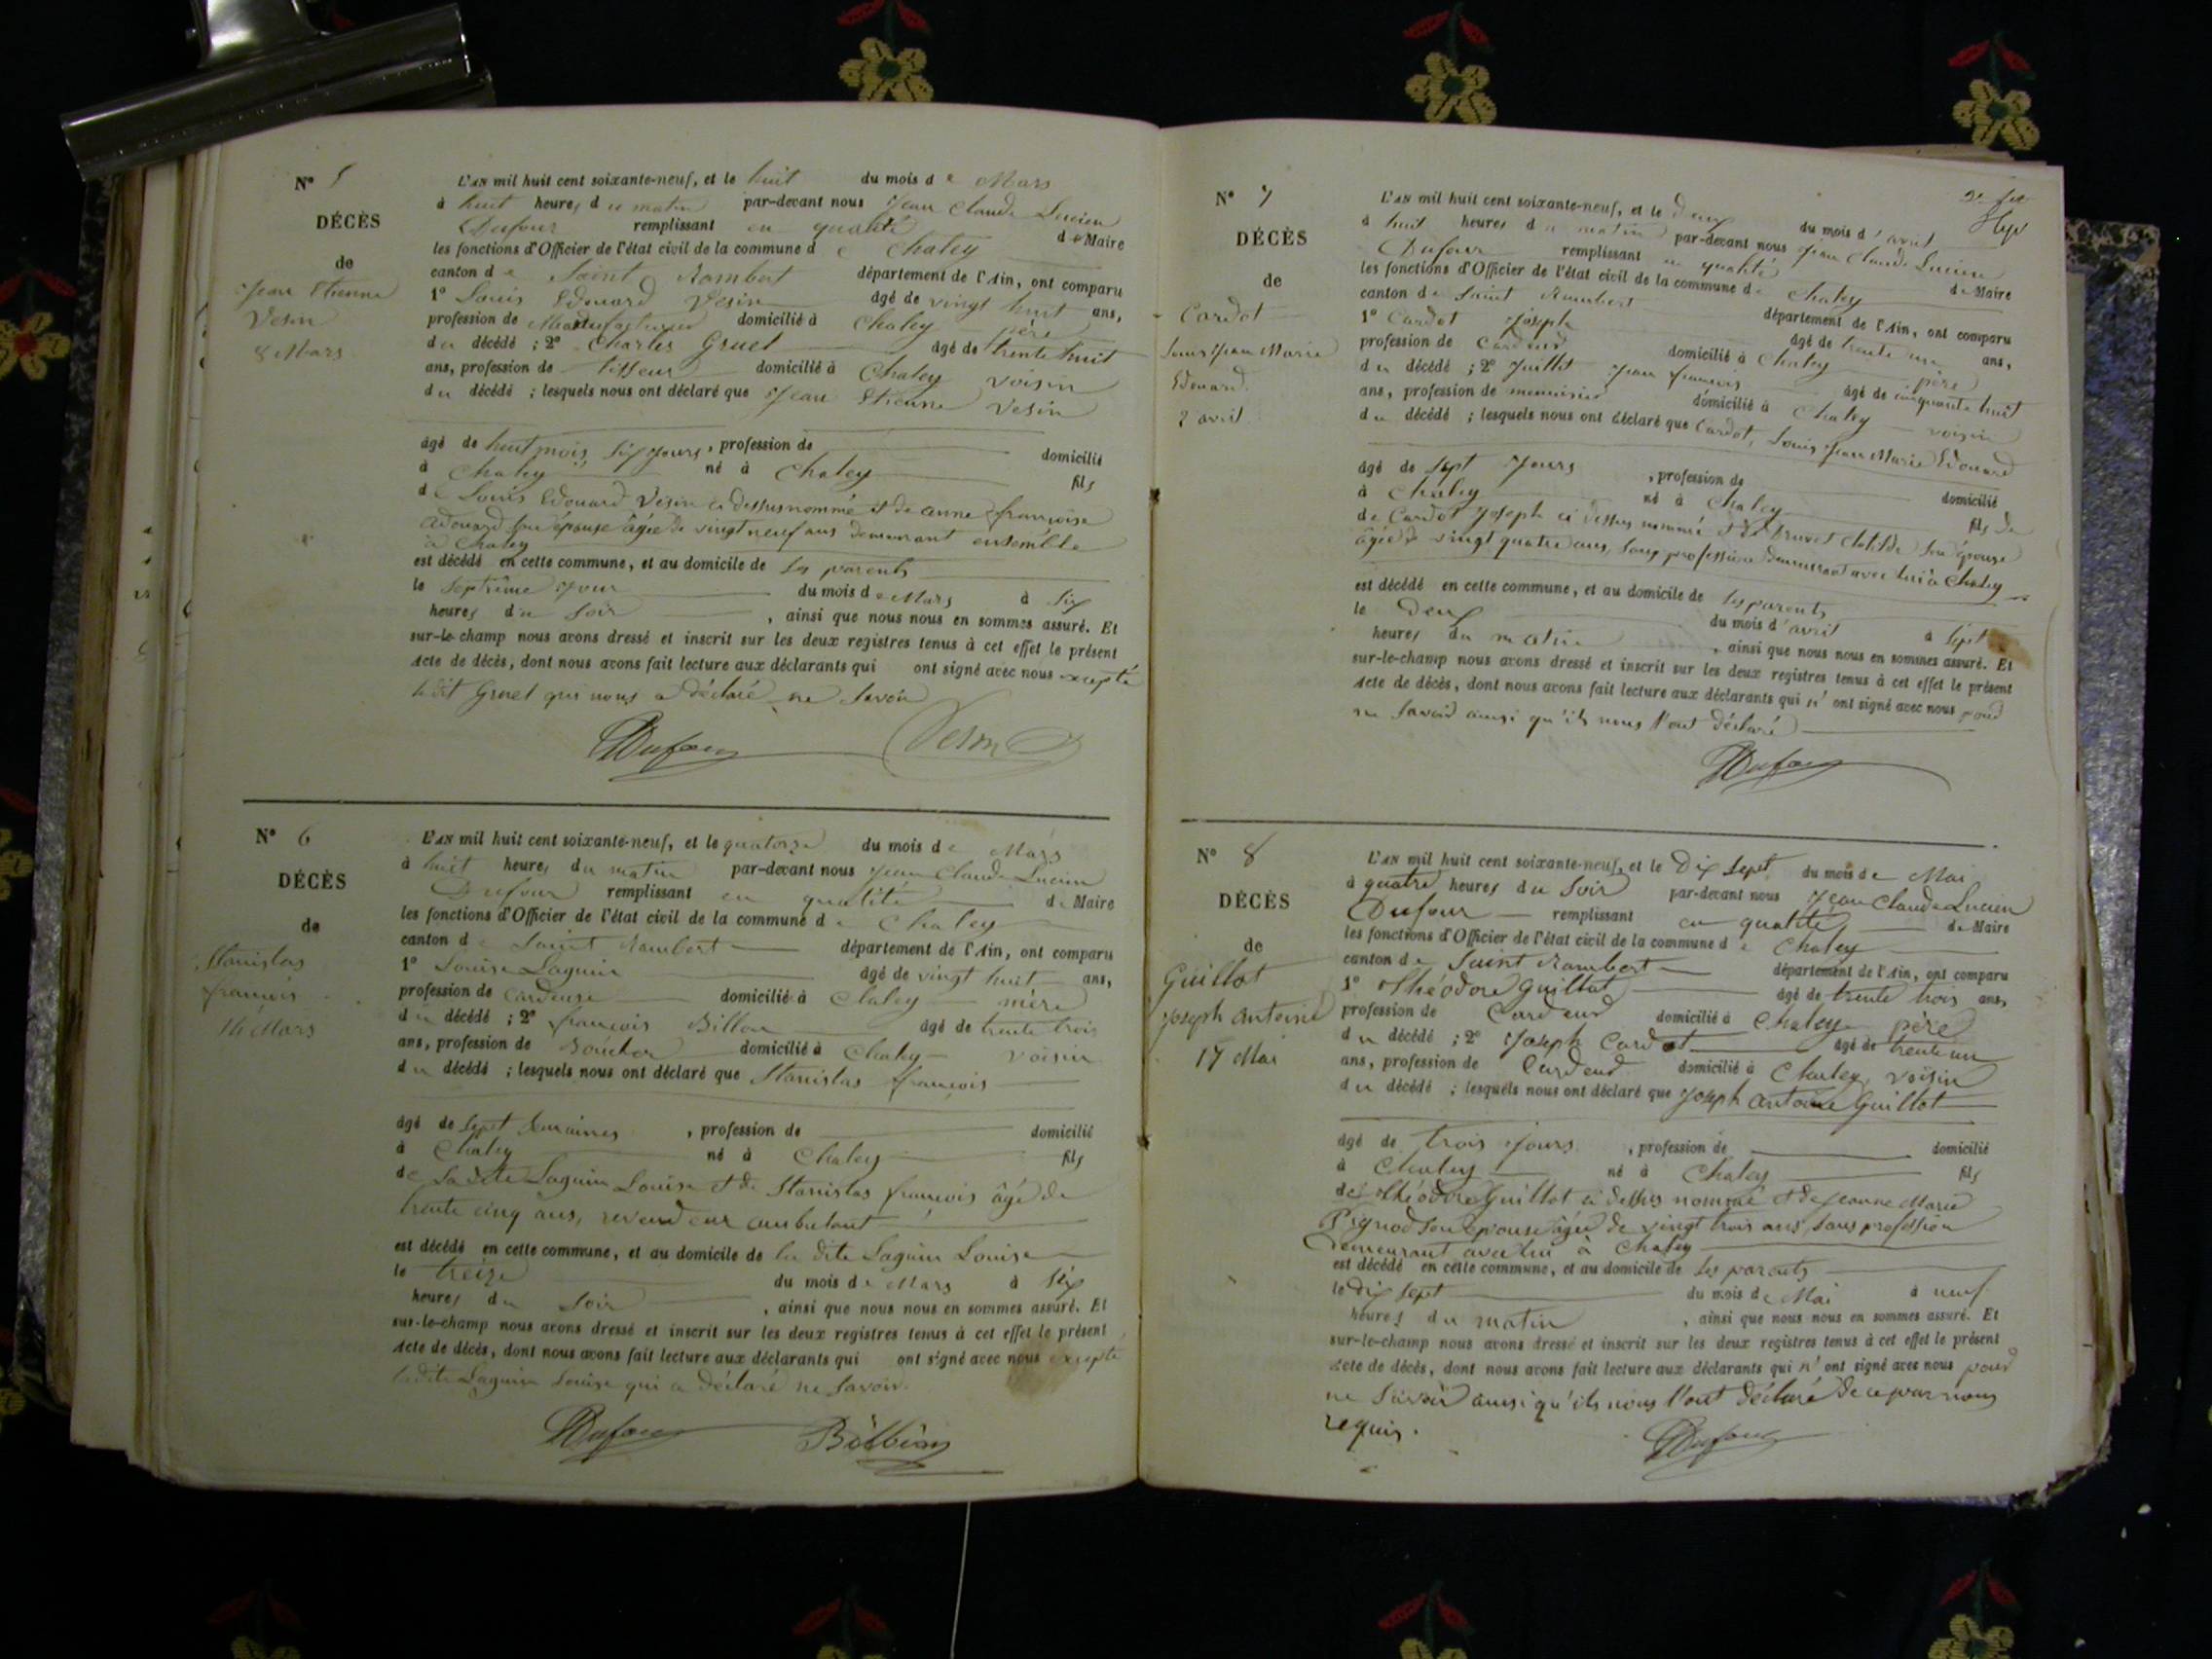 N° 5
DÉCÈS
de
Jean Etienne
Vesin
8 Mars
L'AN mil huit cent soixante-neuf, et le huit du mois de Mars
à huit heures du matin par-devant nous Jean Claude Lucien
Dufour remplissant en qualité de Maire
les fonctions d'Officier de l'état civil de la commune de Chaley
canton de Saint Rambert département de l'Ain, ont comparu
1° Louis Edouard Vesin âgé de vingt huit ans,
profession de domicilié à Chaley père
du décédé ; 2° Charles Gruel âgé de trente huit
ans, profession de tisseur domicilié à Chaley voisin
du décédé ; lesquels nous ont déclaré que Jean Etienne Vesin
âgé de huit mois six jours, profession de domicilié
à Chaley né à Chaley fils
de Louis Edouard Vesin ci dessus nommé et de anne françoise
adouard son épouse âgée de vingt neuf ans demeurant ensemble
à Chaley
est décédé en cette commune, et au domicile de ses parents
le septième jour du mois de Mars à six
heures du soir, ainsi que nous nous en sommes assuré. Et
sur-le-champ nous avons dressé et inscrit sur les deux registres tenus à cet effet le présent
acte de décès, dont nous avons fait lecture aux déclarants qui ont signé avec nous excepté
ledit Gruel qui nous a déclaré ne savoir
Dufour Vesin
N° 6
DÉCÈS
de
Stanislas
françois
14 Mars
L'AN mil huit cent soixante-neuf, et le quatorze du mois de Mars
à huit heures du matin par-devant nous Jean Claude Lucien
Dufour remplissant en qualité de Maire
les fonctions d'Officier de l'état civil de la commune de Chaley
canton de Saint Rambert département de l'Ain, ont comparu
1° Louise Laguin âgé de vingt huit ans,
profession de cardeuse domicilié à Chaley mère
du décédé ; 2° françois Billon âgé de trente trois
ans, profession de domicilié à Chaley voisin
du décédé ; lesquels nous ont déclaré que Stanislas françois
âgé de sept semaines, profession de domicilié
à Chaley né à Chaley fils
de Ladite Laguin Louise et de Stanislas françois âgé de
trente cinq ans, revendeur ambulant
est décédé en cette commune, et au domicile de la dite Laguin Louise
le treize du mois de Mars à six
heures du soir, ainsi que nous nous en sommes assuré. Et
sur-le-champ nous avons dressé et inscrit sur les deux registres tenus à cet effet le présent
acte de décès, dont nous avons fait lecture aux déclarants qui ont signé avec nous excepté
ladite Laguin Louise qui a déclaré ne savoir.
Dufour
N° 7
DÉCÈS
de
Cardot
Louis Jean Marie
Edouard
2 avril
L'AN mil huit cent soixante-neuf, et le deux du mois d'avril
à huit heures du matin par-devant nous Jean Claude Lucien
Dufour remplissant en qualité de Maire
les fonctions d'Officier de l'état civil de la commune de Chaley
canton de Saint Rambert département de l'Ain, ont comparu
1° Cardot Joseph âgé de trente un ans,
profession de Cardeur domicilié à Chaley père
du décédé ; 2° Juillet Jean françois âgé de cinquante huit
ans, profession de menuisier domicilié à Chaley voisin
du décédé ; lesquels nous ont déclaré que Cardot, Louis Jean Marie Edouard
âgé de sept jours, profession de domicilié
à Chaley né à Chaley fils de
de Cardot Joseph ci dessus nommé et de Clotilde son épouse
âgée de vingt quatre ans, sans profession demeurant avec lui à Chaley
est décédé en cette commune, et au domicile de ses parents
le deux du mois d'avril à sept
heures du matin, ainsi que nous nous en sommes assuré. Et
sur-le-champ nous avons dressé et inscrit sur les deux registres tenus à cet effet le présent
acte de décès, dont nous avons fait lecture aux déclarants qui n'ont signé avec nous pour
ne savoir ainsi qu'ils nous l'ont déclaré
Dufour
N° 8
DÉCÈS
de
Guillot
Joseph Antoine
17 Mai
L'AN mil huit cent soixante-neuf, et le Dix sept du mois de Mai
à quatre heures du soir par-devant nous Jean Claude Lucien
Dufour remplissant en qualité de Maire
les fonctions d'Officier de l'état civil de la commune de Chaley
canton de Saint Rambert département de l'Ain, ont comparu
1° Théodore Guillot âgé de trente trois ans,
profession de Cardeur domicilié à Chaley père
du décédé ; 2° Joseph Cardot âgé de trente un
ans, profession de Cardeur domicilié à Chaley, voisin
du décédé ; lesquels nous ont déclaré que Joseph Antoine Guillot
âgé de trois jours, profession de domicilié
à Chaley né à Chaley fils
de Théodore Guillot ci dessus nommé et de Jeanne Marie
Pignod son épouse âgée de vingt trois ans, sans profession
demeurant avec lui à Chaley
est décédé en cette commune, et au domicile de ses parents
le dix sept du mois de Mai à neuf
heures du matin, ainsi que nous nous en sommes assuré. Et
sur-le-champ nous avons dressé et inscrit sur les deux registres tenus à cet effet le présent
acte de décès, dont nous avons fait lecture aux déclarants qui n'ont signé avec nous pour
ne savoir ainsi qu'ils nous l'ont déclaré de ce par nous
requis.
Dufour